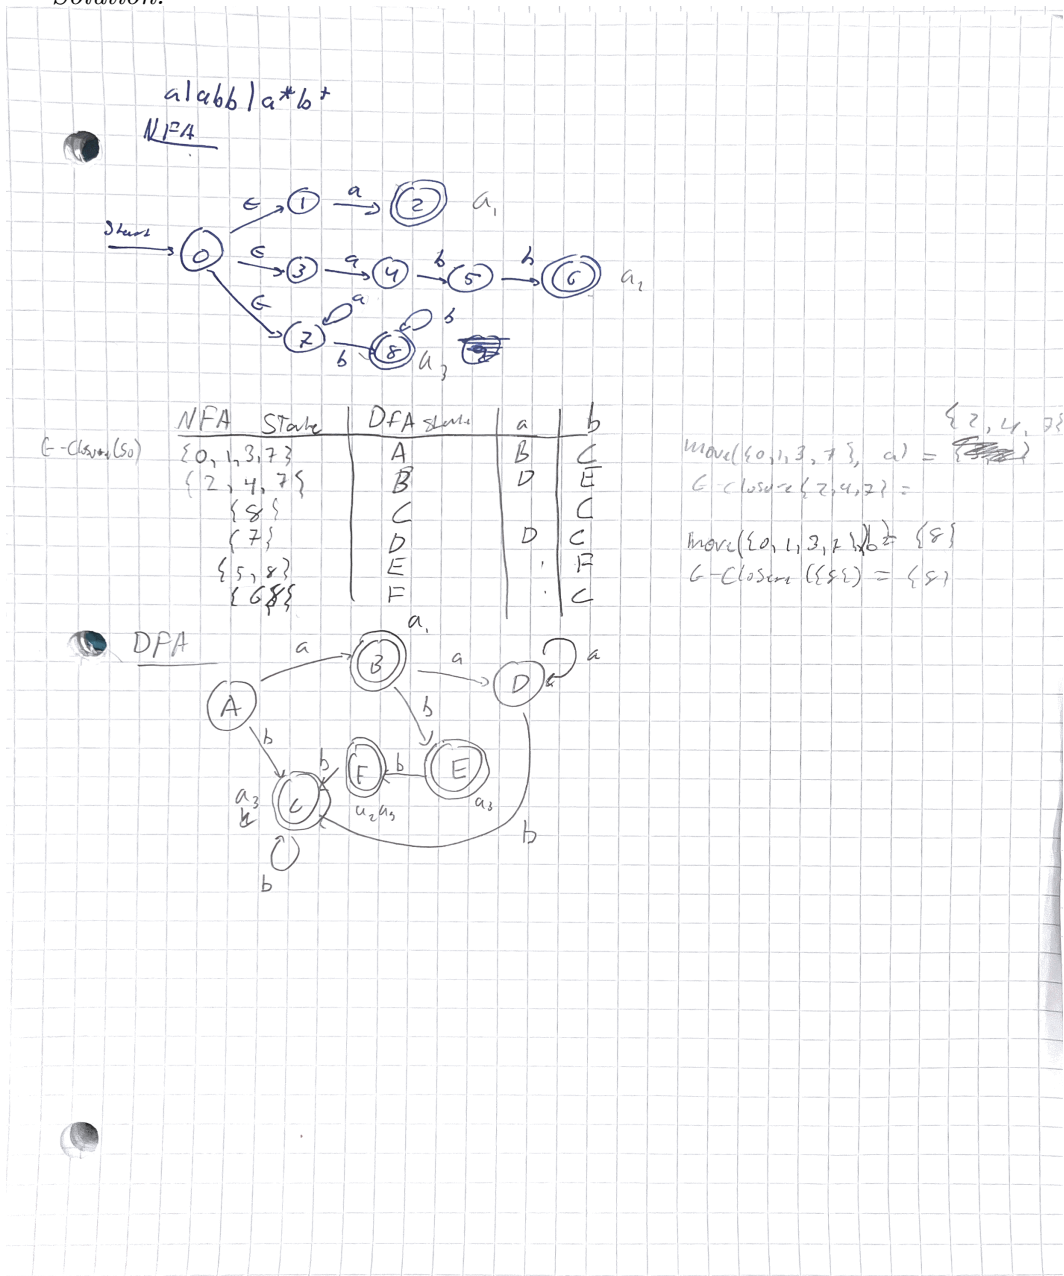 Solution:
a|abb|a*b+
NFA
Start 0 ϵ 1 a 2 a1
ϵ 3 a 4 b 5 b 6 a2
ϵ 7 a b 8 b a3
NFA State DFA state a b
ϵ-Closure(S0) {0,1,3,7} A B C
{2,4,7} B D E
{8} C C
{7} D D C
{5,8} E . F
{6 8} F . C
{2,4,7}
move({0,1,3,7}, a) =
ϵ-closure{2,4,7} =
move({0,1,3,7}, b) = {8}
ϵ-Closure({8}) = {8}
DFA
A a B a1 a D a
b b
C a3 b F a2 a3 b E a3
b b